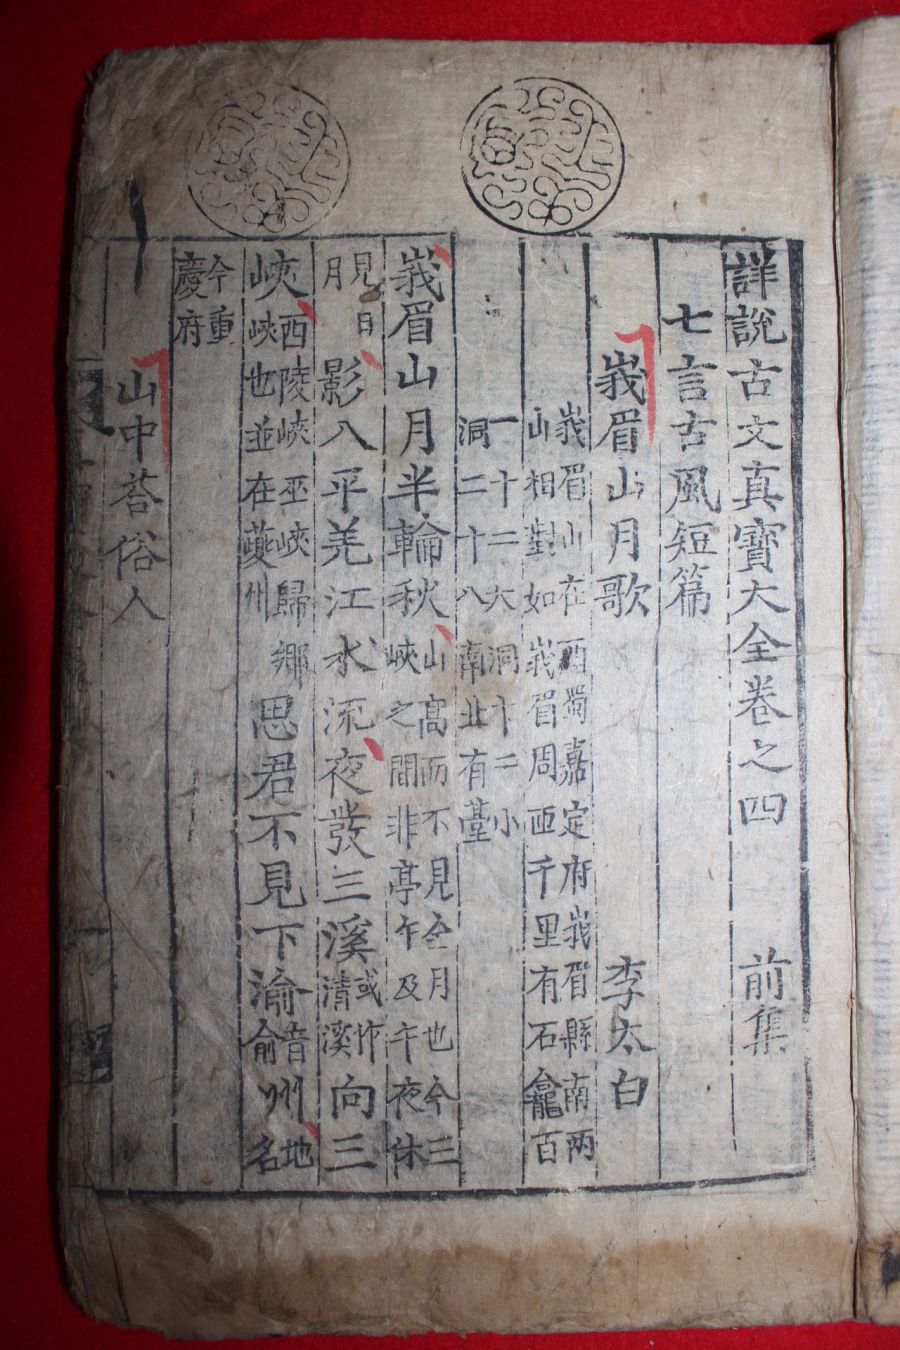 詳說古文真寶大全卷之四 前集
七言古風短篇
峩眉山月歌 李太白
峩眉山在西蜀嘉定府峩眉縣南两
山相對如峩眉周匝千里有石龕百
一十二大洞十二小
洞二十八南北有臺
峩眉山月半輪秋 山高而不見全月也今三
峽之間非亭午及午夜休
見日
月 影入平羌江水流夜發三溪 或作 清溪 向三
峽 西陵峽巫峽歸鄉
峽也並在夔州 思君不見下渝 音 俞 州 地 名
今重
慶府
山中荅俗人